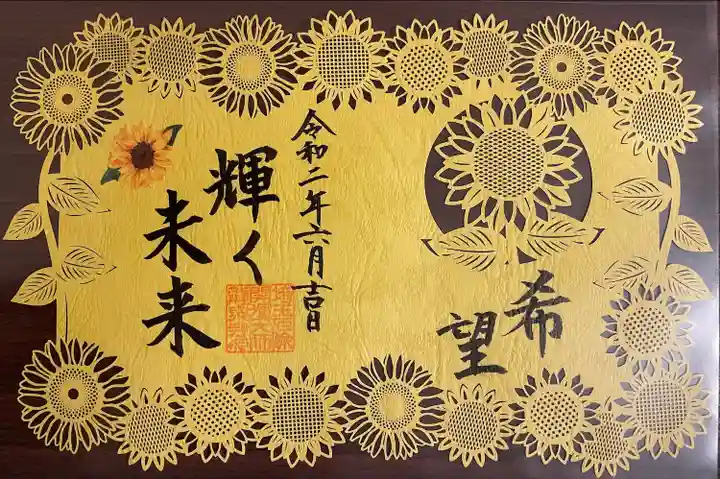 希
望
令和二年六月吉日
輝く
未来